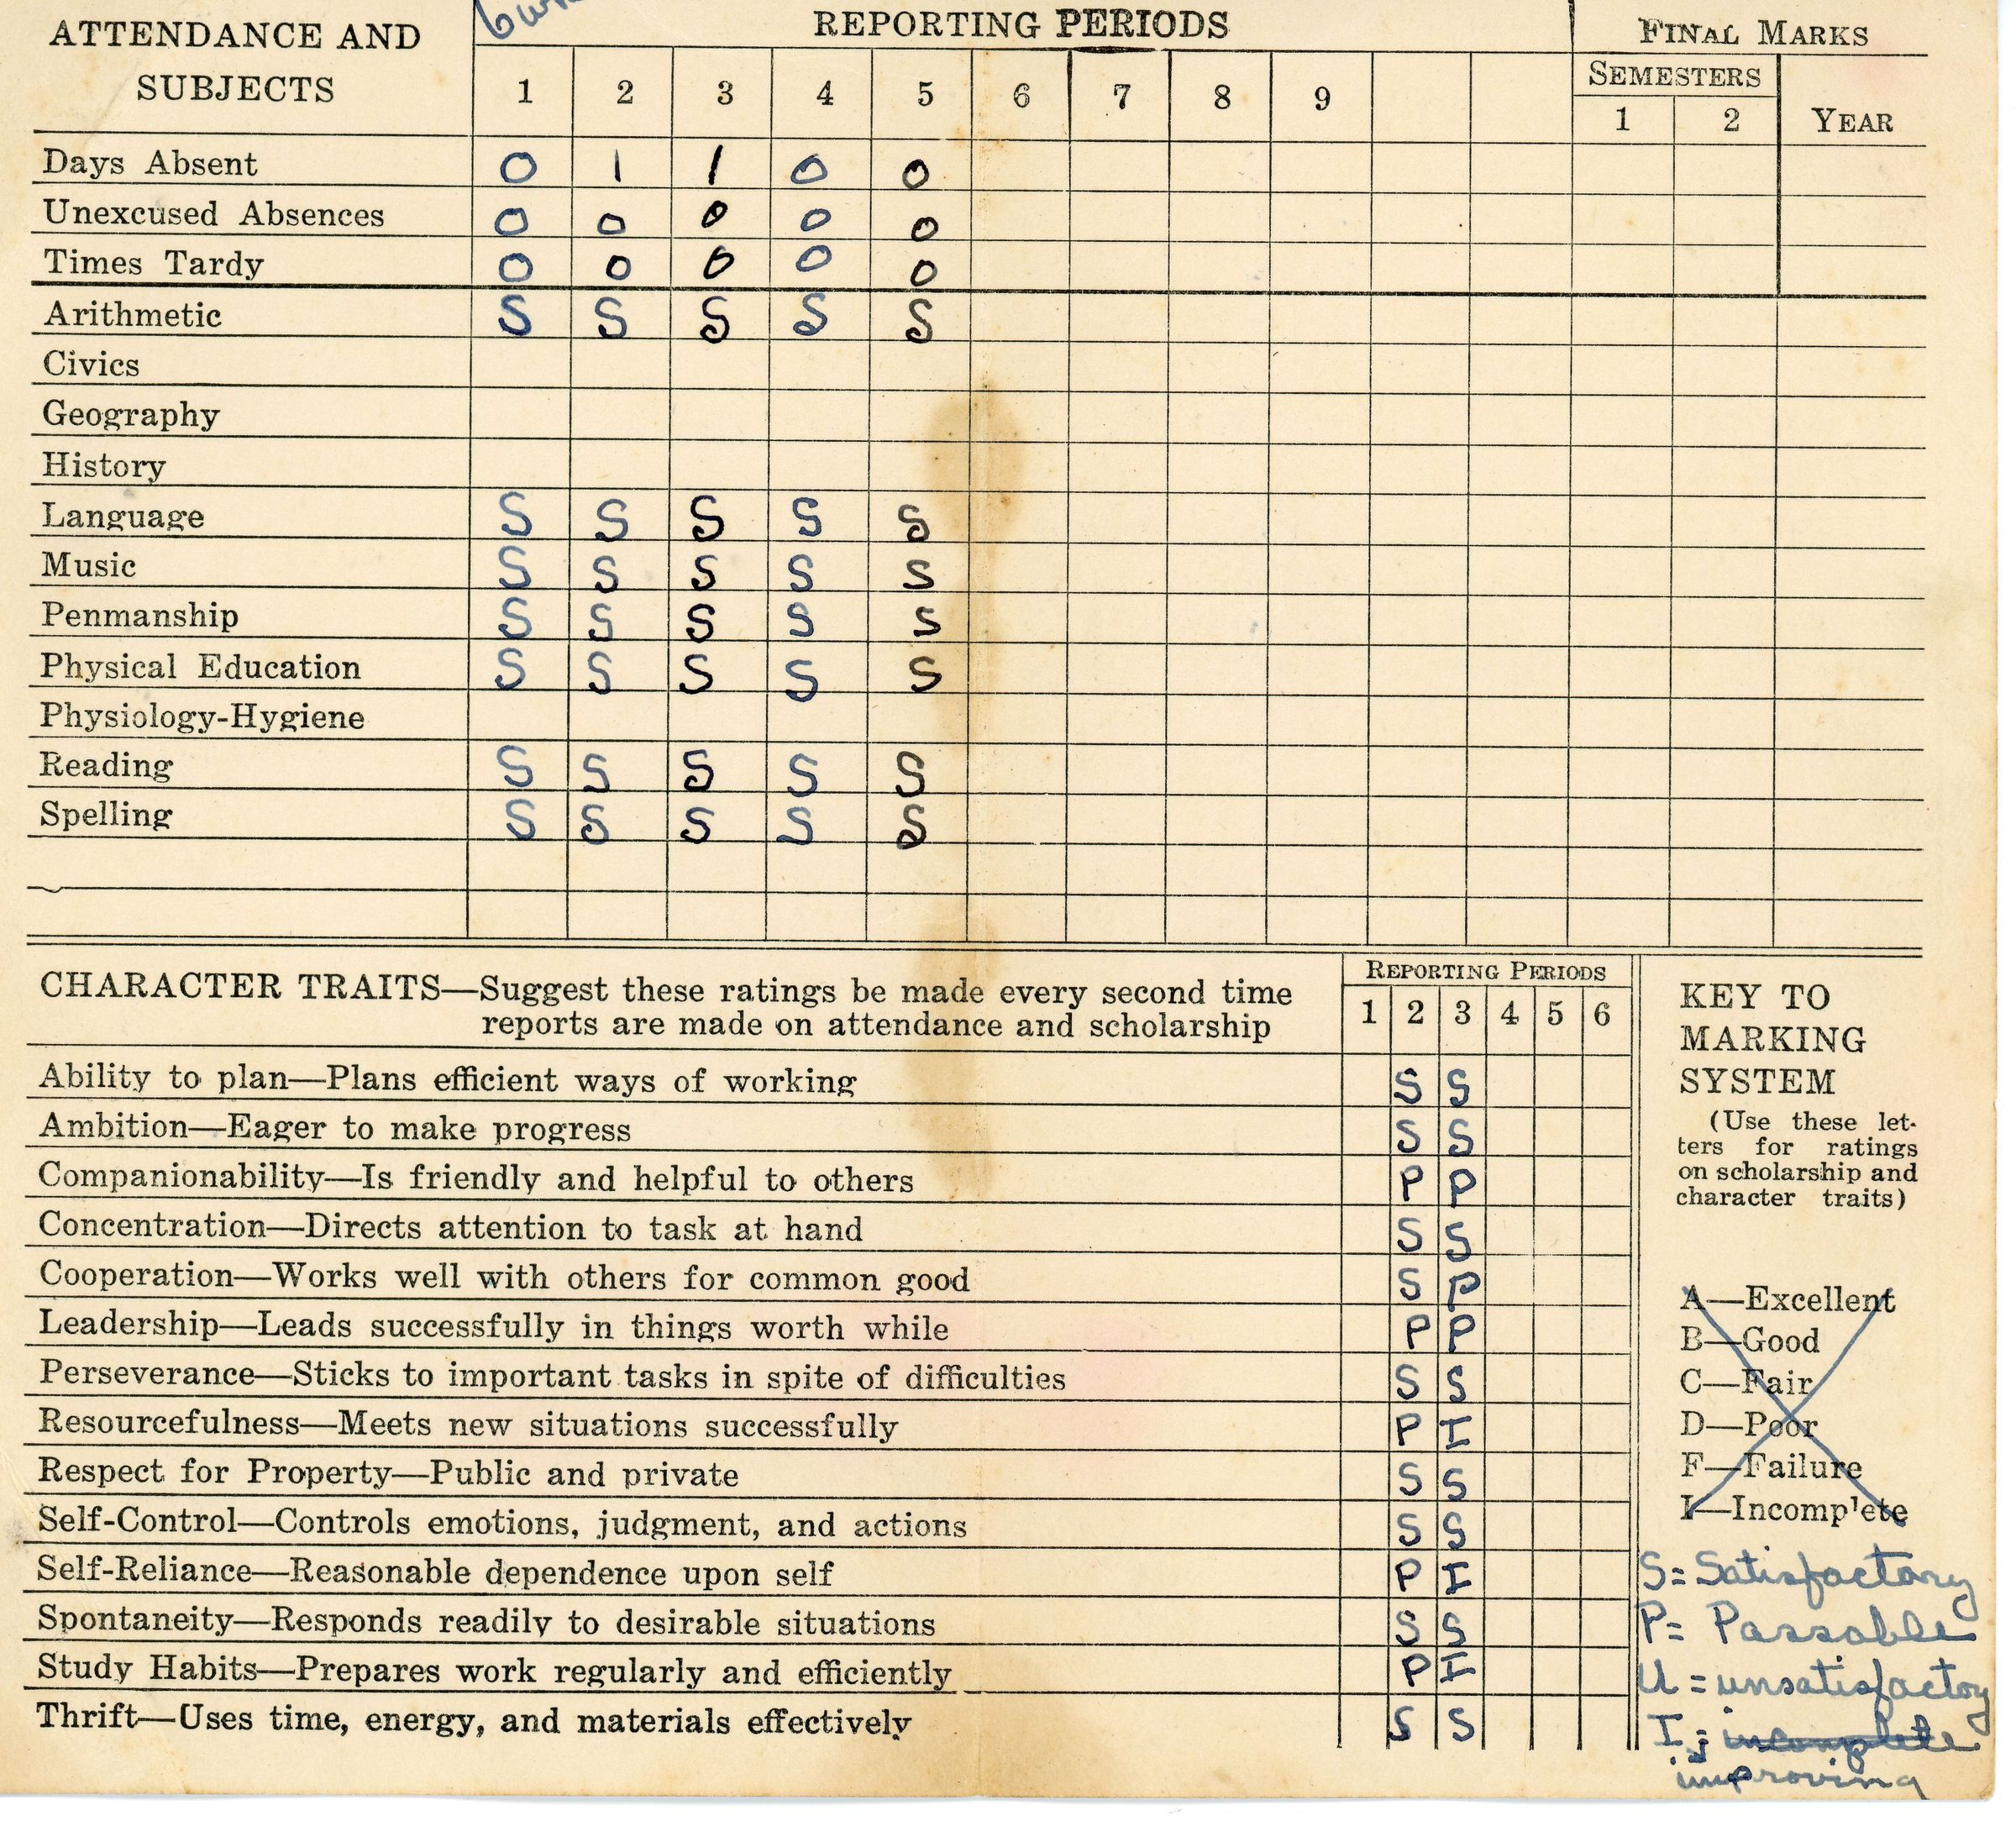 ATTENDANCE AND SUBJECTS REPORTING PERIODS FINAL MARKS
SEMESTERS
1 2 3 4 5 6 7 8 9 1 2 YEAR
Days Absent 0 1 1 0 0
Unexcused Absences 0 0 0 0 0
Times Tardy 0 0 0 0 0
Arithmetic S S S S S
Civics
Geography
History
Language S S S S S
Music S S S S S
Penmanship S S S S S
Physical Education S S S S S
Physiology-Hygiene
Reading S S S S S
Spelling S S S S S
CHARACTER TRAITS—Suggest these ratings be made every second time
reports are made on attendance and scholarship
REPORTING PERIODS
1 2 3 4 5 6
Ability to plan—Plans efficient ways of working S S
Ambition—Eager to make progress S S
Companionability—Is friendly and helpful to others P P
Concentration—Directs attention to task at hand S S
Cooperation—Works well with others for common good S P
Leadership—Leads successfully in things worth while P P
Perseverance—Sticks to important tasks in spite of difficulties S S
Resourcefulness—Meets new situations successfully P I
Respect for Property—Public and private S S
Self-Control—Controls emotions, judgment, and actions S S
Self-Reliance—Reasonable dependence upon self P I
Spontaneity—Responds readily to desirable situations S S
Study Habits—Prepares work regularly and efficiently P I
Thrift—Uses time, energy, and materials effectively S S
KEY TO
MARKING
SYSTEM
(Use these let-
ters for ratings
on scholarship and
character traits)
A—Excellent
B—Good
C—Fair
D—Poor
F—Failure
I—Incomplete
S = Satisfactory
P = Passable
U = unsatisfactory
I = incomplete
improving